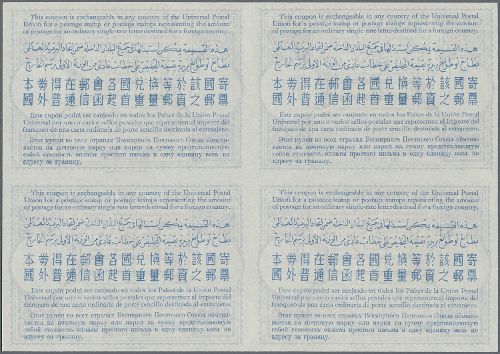 This coupon is exchangeable in any country of the Universal Postal
Union for a postage stamp or postage stamps representing the amount
of postage for an ordinary single-rate letter destined for a foreign country.
هذه القسيمة يمكن استبدالها في جميع البلدان الداخلة ضمن اتحاد البريد العالمي
بطابع أو طوابع بريد بقيمة التخليص على خطاب عادي من الوزنة الأولى برسم الخارج
本券得在郵會各國兌換等於該國寄
國外普通信函起首重量郵資之郵票
Este cupón podrá ser canjeado en todos los Países de la Unión Postal
Universal por uno o varios sellos postales que representen el importe del
franqueo de una carta ordinaria de porte sencillo destinada al extranjero.
Этот купон во всех странах Всемирного Почтового Союза обмени-
вается на почтовую марку или марки на сумму представляющую
собой стоимость оплаты простого письма в одну единицу веса по
адресу за границу.
This coupon is exchangeable in any country of the Universal Postal
Union for a postage stamp or postage stamps representing the amount
of postage for an ordinary single-rate letter destined for a foreign country.
هذه القسيمة يمكن استبدالها في جميع البلدان الداخلة ضمن اتحاد البريد العالمي
بطابع أو طوابع بريد بقيمة التخليص على خطاب عادي من الوزنة الأولى برسم الخارج
本券得在郵會各國兌換等於該國寄
國外普通信函起首重量郵資之郵票
Este cupón podrá ser canjeado en todos los Países de la Unión Postal
Universal por uno o varios sellos postales que representen el importe del
franqueo de una carta ordinaria de porte sencillo destinada al extranjero.
Этот купон во всех странах Всемирного Почтового Союза обмени-
вается на почтовую марку или марки на сумму представляющую
собой стоимость оплаты простого письма в одну единицу веса по
адресу за границу.
This coupon is exchangeable in any country of the Universal Postal
Union for a postage stamp or postage stamps representing the amount
of postage for an ordinary single-rate letter destined for a foreign country.
هذه القسيمة يمكن استبدالها في جميع البلدان الداخلة ضمن اتحاد البريد العالمي
بطابع أو طوابع بريد بقيمة التخليص على خطاب عادي من الوزنة الأولى برسم الخارج
本券得在郵會各國兌換等於該國寄
國外普通信函起首重量郵資之郵票
Este cupón podrá ser canjeado en todos los Países de la Unión Postal
Universal por uno o varios sellos postales que representen el importe del
franqueo de una carta ordinaria de porte sencillo destinada al extranjero.
Этот купон во всех странах Всемирного Почтового Союза обмени-
вается на почтовую марку или марки на сумму представляющую
собой стоимость оплаты простого письма в одну единицу веса по
адресу за границу.
This coupon is exchangeable in any country of the Universal Postal
Union for a postage stamp or postage stamps representing the amount
of postage for an ordinary single-rate letter destined for a foreign country.
هذه القسيمة يمكن استبدالها في جميع البلدان الداخلة ضمن اتحاد البريد العالمي
بطابع أو طوابع بريد بقيمة التخليص على خطاب عادي من الوزنة الأولى برسم الخارج
本券得在郵會各國兌換等於該國寄
國外普通信函起首重量郵資之郵票
Este cupón podrá ser canjeado en todos los Países de la Unión Postal
Universal por uno o varios sellos postales que representen el importe del
franqueo de una carta ordinaria de porte sencillo destinada al extranjero.
Этот купон во всех странах Всемирного Почтового Союза обмени-
вается на почтовую марку или марки на сумму представляющую
собой стоимость оплаты простого письма в одну единицу веса по
адресу за границу.